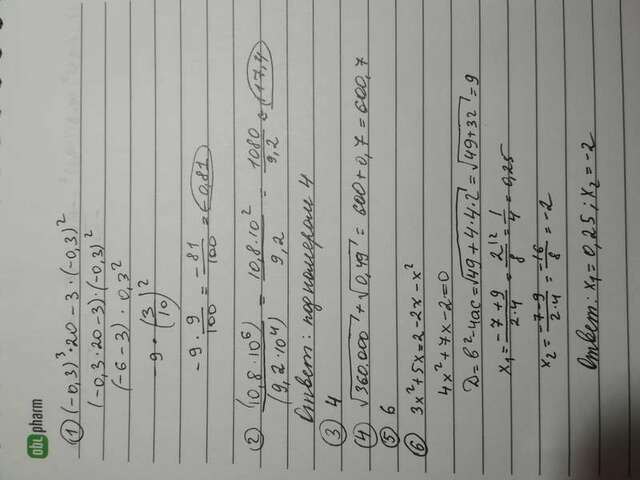 obl pharm
① (-0,3)³·20-3·(-0,3)²
(-0,3·20-3)·(-0,3)²
(-6-3)·0,3²
-9·(3/10)²
-9·9/100=-81/100=-0,81
② (10,8·10⁶)/(9,2·10⁴)=10,8·10²/9,2=1080/9,2=117,4
Ответ: под номером 4
③ 4
④ √360.000+√0,49=600+0,7=600,7
⑤ 6
⑥ 3x²+5x=2-2x-x²
4x²+7x-2=0
D=b²-4ac=√49+4·4·2=√49+32=9
x₁=-7+9/2·4=2/8=1/4=0,25
x₂=-7-9/2·4=-16/8=-2
Ответ: x₁=0,25; x₂=-2